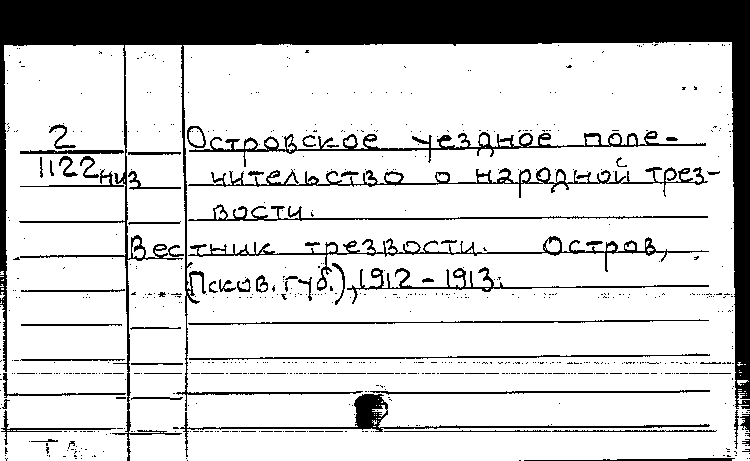 2
1122 низ
Островское уездное попе-
чительство о народной трез-
вости.
Вестник трезвости. Остров,
(Псков. губ.), 1912-1913.